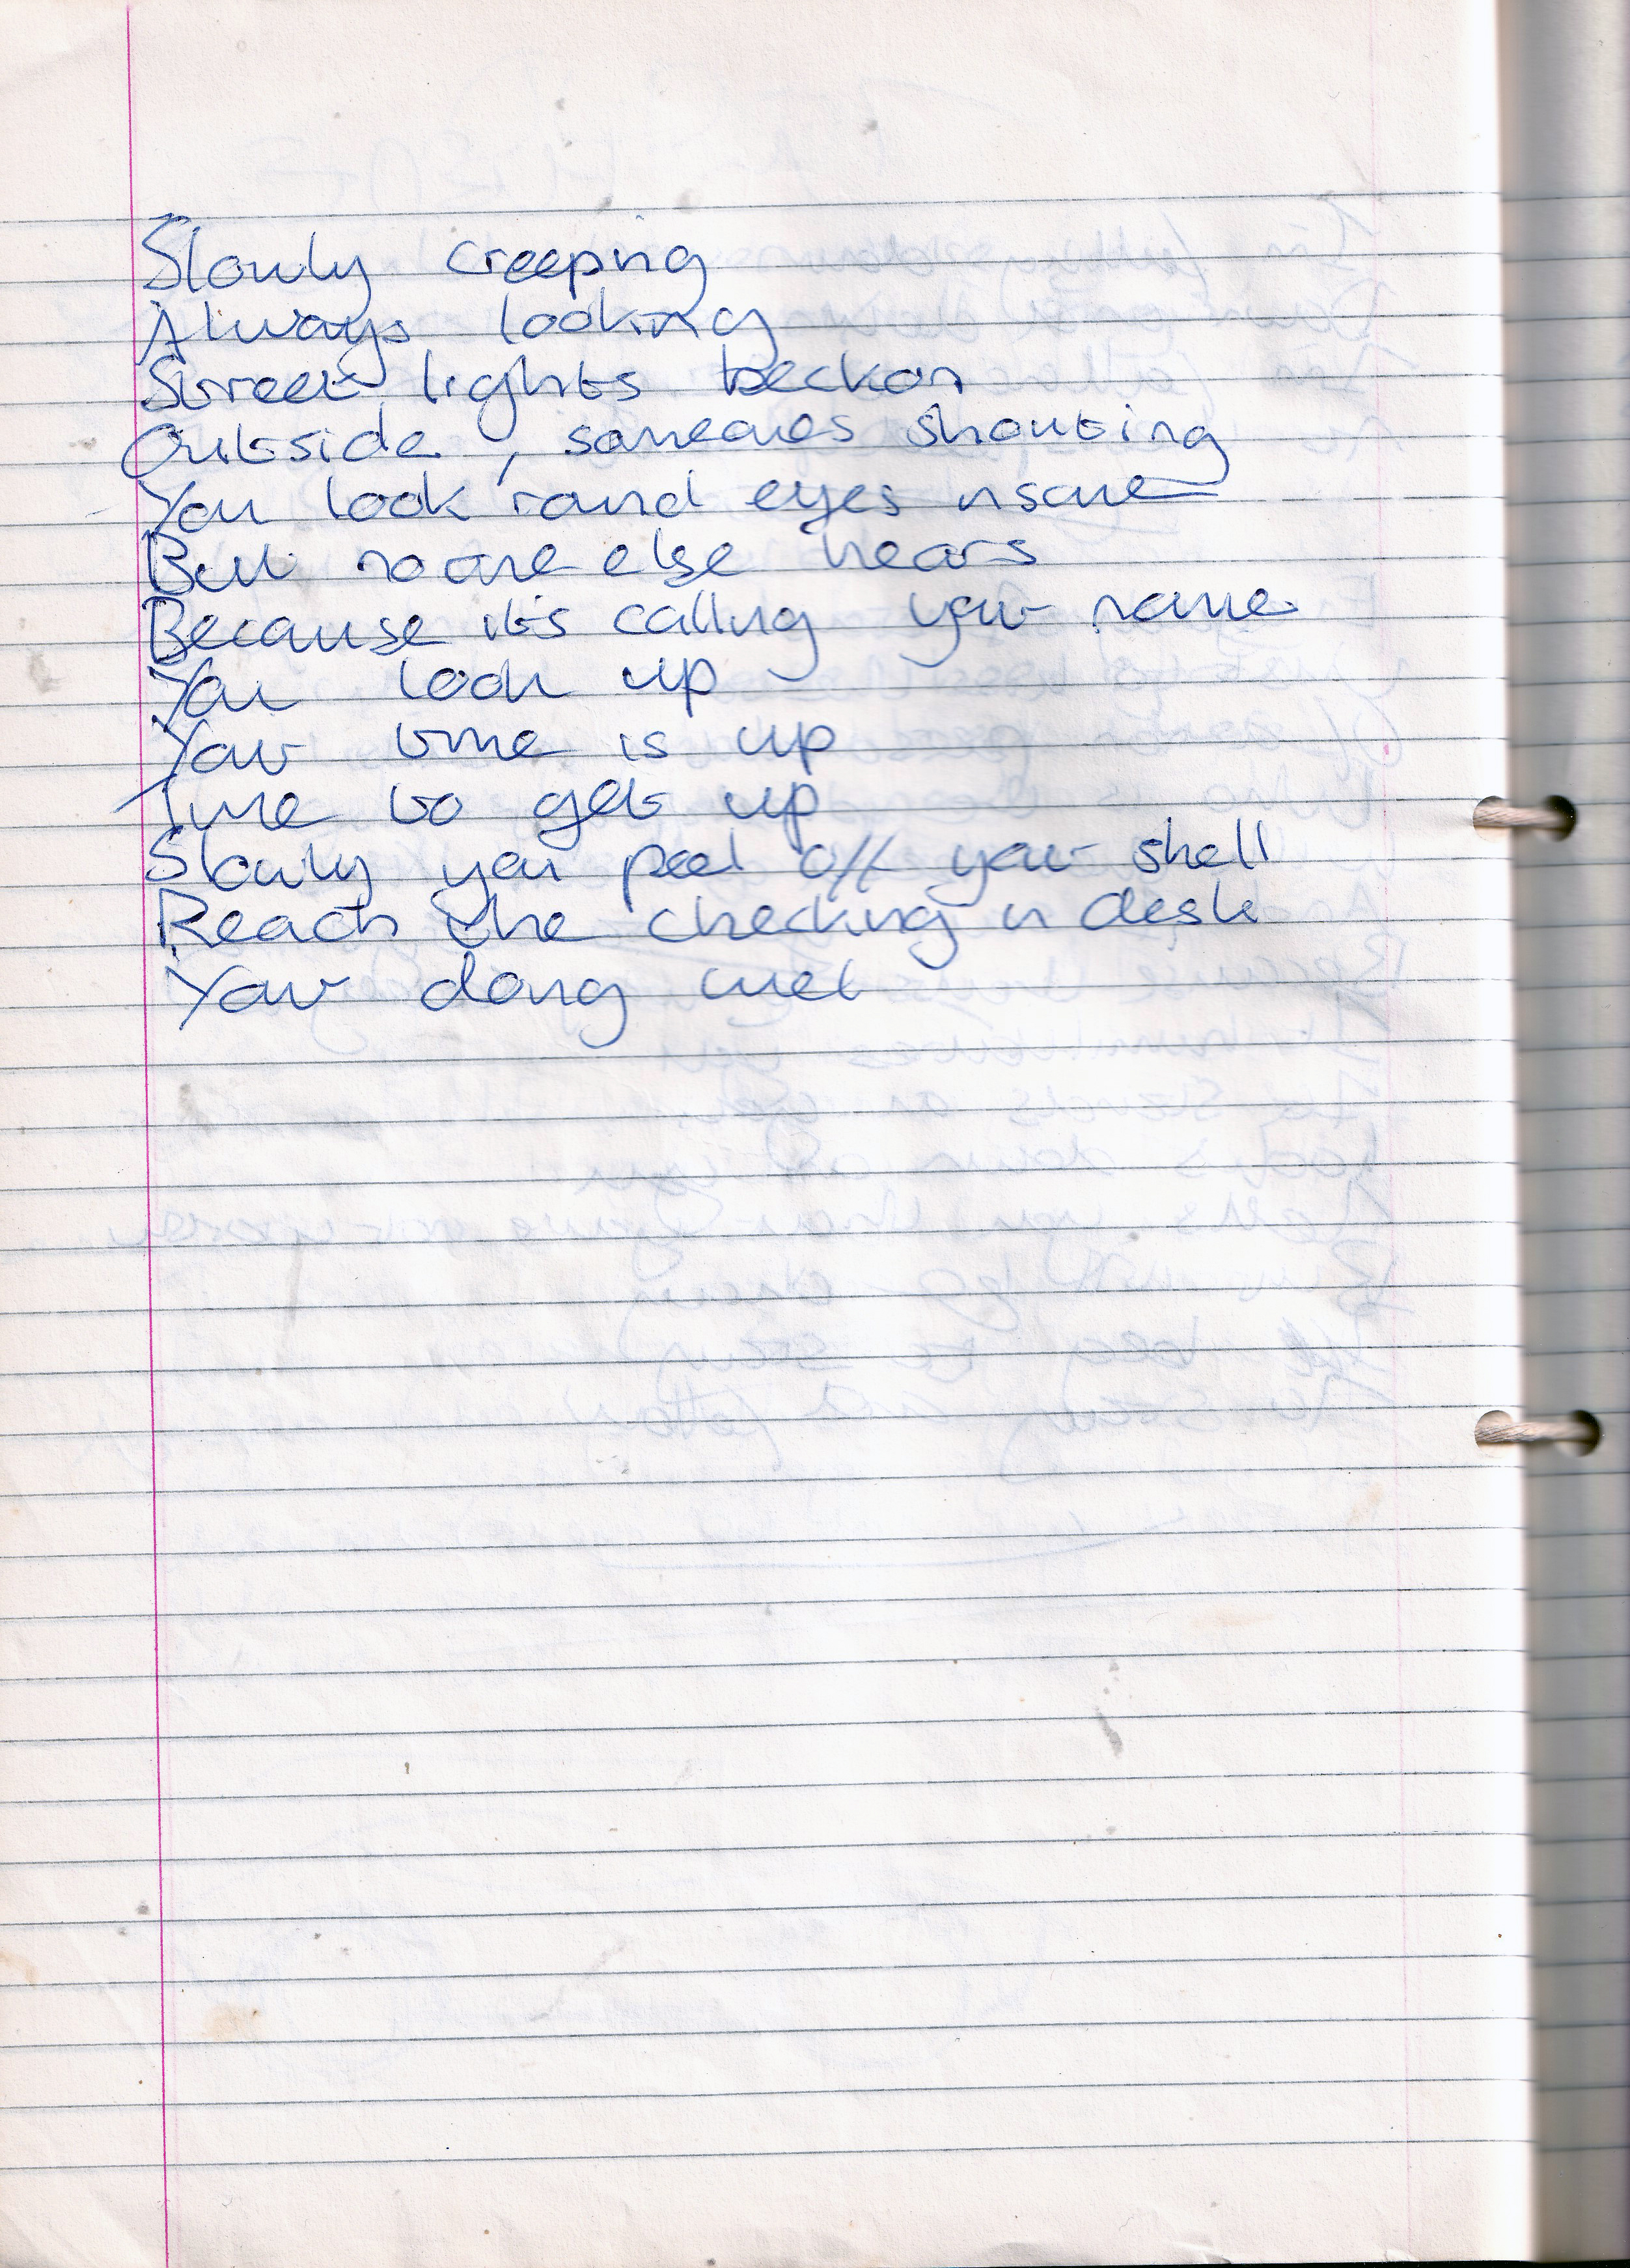 Slowly creeping
Always looking
Street lights beckon
Outside, someones shouting
You look 'round eyes insane
But noone else hears
Because it's calling your name
You look up
Your time is up
Time to get up
Slowly you peel off your shell
Reach the checking in desk
Your doing well